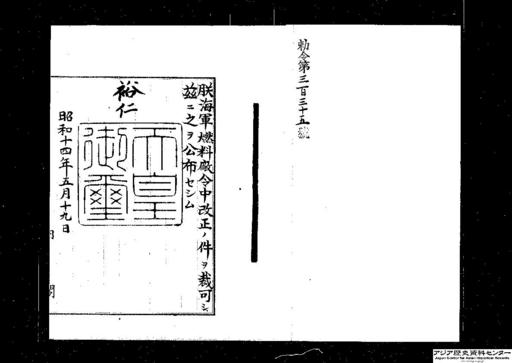 勅令第三百三十五號
朕海軍燃料廠令中改正ノ件ヲ裁可シ
茲ニ之ヲ公布セシム
裕仁
天皇
御璽
昭和十四年五月十九日
内閣
アジア歴史資料センター
Japan Center for Asian Historical Records